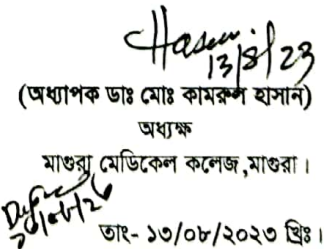 13/8/23
(অধ্যাপক ডাঃ মোঃ কামরুল হাসান)
অধ্যক্ষ
মাগুরা মেডিকেল কলেজ,মাগুরা।
তাং- ১৩/০৮/২০২৩ খ্রিঃ।